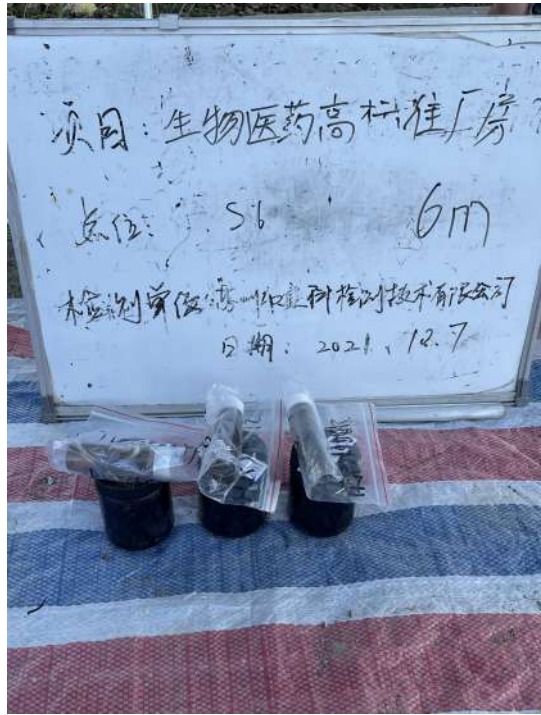 项目：生物医药高标准厂房
点位： S6 6m
检测单位： 科检测技术有限公司
日期： 2021、12.7